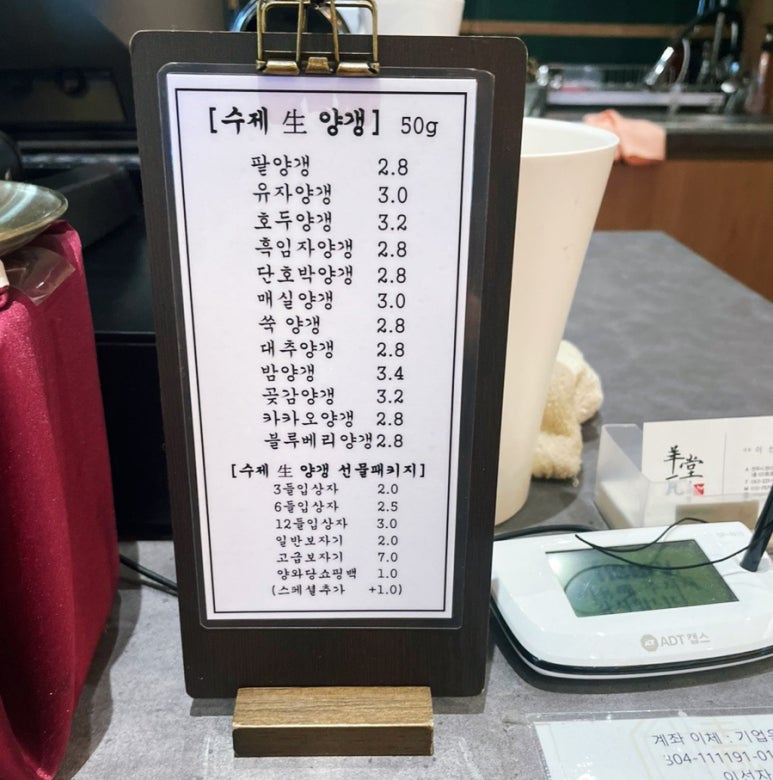 [수제 生 양갱] 50g
팥양갱 2.8
유자양갱 3.0
호두양갱 3.2
흑임자양갱 2.8
단호박양갱 2.8
매실양갱 3.0
쑥 양갱 2.8
대추양갱 2.8
밤양갱 3.4
곶감양갱 3.2
카카오양갱 2.8
블루베리양갱 2.8
[수제 生 양갱 선물패키지]
3들입상자 2.0
6들입상자 2.5
12들입상자 3.0
일반보자기 2.0
고급보자기 7.0
양와당쇼핑백 1.0
(스페셜추가 +1.0)
羊瓦堂
ADT 캡스
계좌 이체 : 기업
304-111191-01
이석지